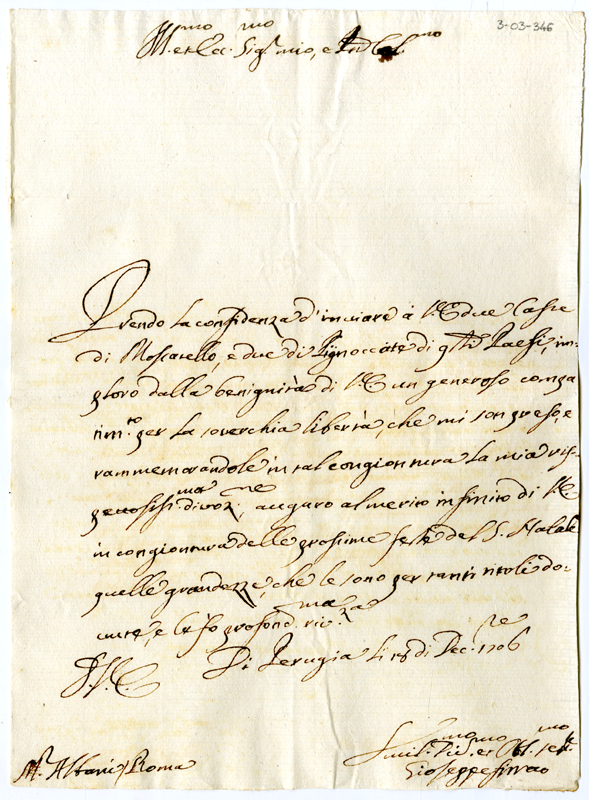 3-03-346
Ill.mo et Ecc.mo Sig.r mio, e P̃ron Col.mo
Prendo la confidenza d'inuiare à V.E. due Casse
di Moscatello, e due di Pignoccate di q.sti Paesi, im-
ploro dalla benignità di V.E. un generoso compa
tim.to per la souerchia libertà, che mi son preso, e
rammemorandole in tal congiontura la mia ris-
pettosiss.ma diuoz.ne, auguro al merito infinito di V.E.
in congiontura delle prossime feste del S. Natale
quelle grandezze, che le sono per tanti titoli do-
uute, e le fo profond.ma riu.za
D.V.E. Di Perugia li 18 di Dec.re 1706
M.r Albani / Roma
Humil.mo Diu.mo et Obl.mo ser.re
Gioseppe firrao